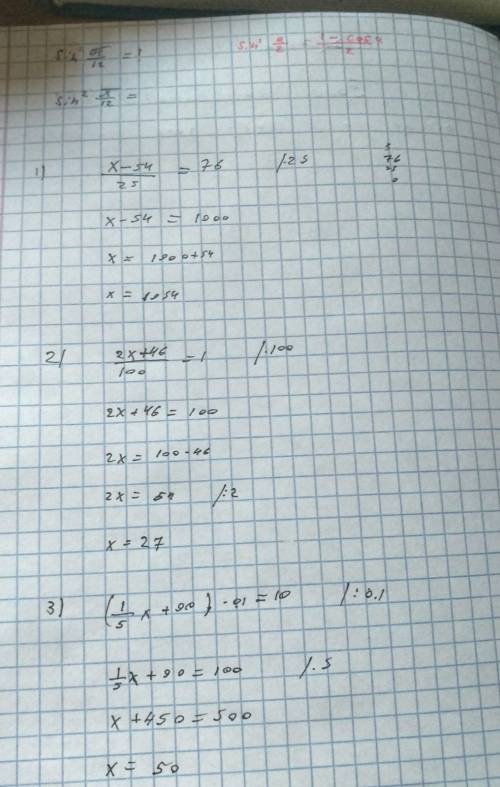 sin² π/12 = !
sin² π/12 =
1) (x-54)/25 = 76 /·25
x-54 = 1900
x = 1900+54
x = 1954
2) (2x+46)/100 = 1 /·100
2x+46 = 100
2x = 100-46
2x = 54 /:2
x = 27
3) (1/5 x + 90) · 0.1 = 10 /: 0.1
1/5 x + 90 = 100 /·5
x + 450 = 500
x = 50